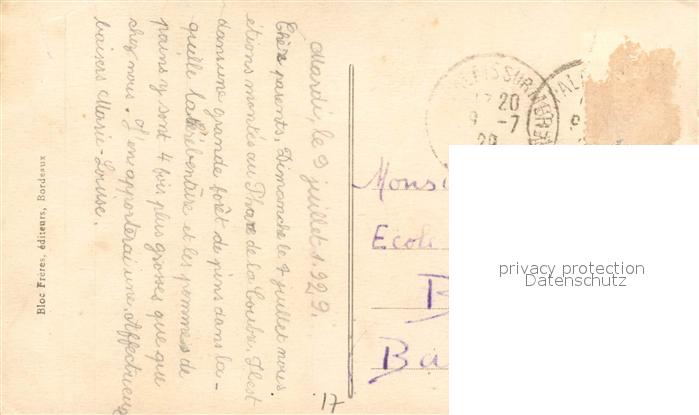 Mardi, le 9 juillet 1929.
Chers parents, Dimanche le 7 juillet nous
étions montés au Phare de la Coubre Il est
dans une grande forêt de pins dans la-
quille la térébentine et les pommes de
pains y sont 4 fois plus grosses que que
chez nous. J'en apporterai une. Affectueux
baisers Marie-Louise.
Bloc Frères, éditeurs, Bordeaux
17
SUR MER
17 20
9 -7
29
Monsi
Ecole
B
Ba
privacy protection
Datenschutz